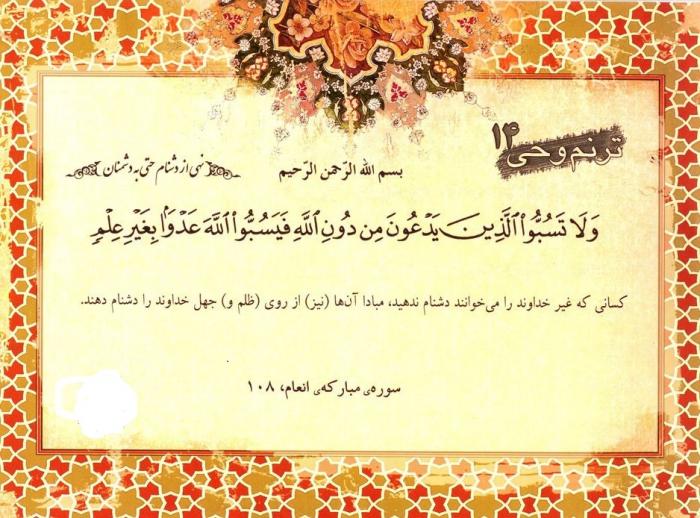 ترنم وحی ۱۴
بسم الله الرّحمن الرّحیم
نهی از دشنام حتی به دشمنان
وَلَا تَسُبُّوا۟ الَّذِينَ يَدْعُونَ مِن دُونِ اللَّهِ فَيَسُبُّوا۟ اللَّهَ عَدْوًۢا بِغَيْرِ عِلْمٍۢ
کسانی که غیر خداوند را می‌خوانند دشنام ندهید، مبادا آن‌ها (نیز) از روی (ظلم و) جهل خداوند را دشنام دهند.
سوره‌ی مبارکه‌ی انعام، ۱۰۸